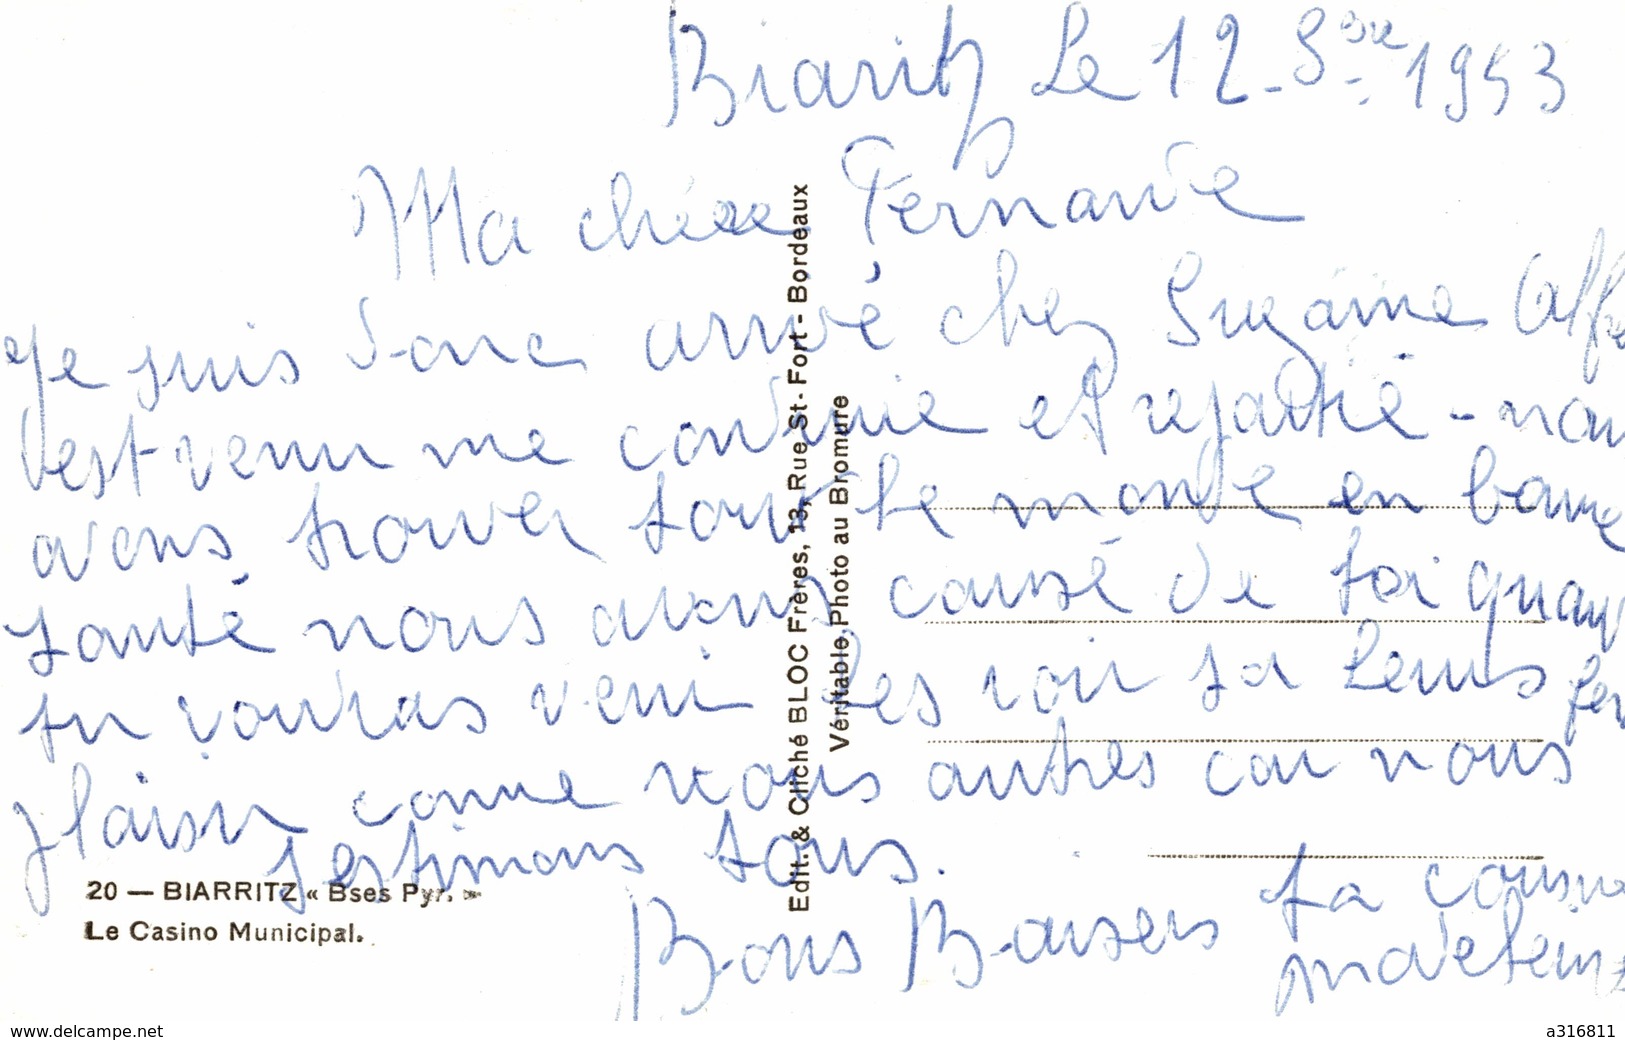 Biaritz Le 12 - 8bre - 1953
Ma chère Fernande
Je suis donc arrivé chez Suzanne Alfre
c'est venu me conduire et repartie - nou
avons trouver tous le monde en bonne
santé nous avons causé de toi quand
tu voudras venir les voir sa leurs fer
plaisir comme nous autres car nous
t'estimons tous.
Bons Baisers ta cousine
Madeleine
20 — BIARRITZ « Bses Pyr. »
Le Casino Municipal.
Edit. & Cliché BLOC Frères, 13, Rue St-Fort - Bordeaux
Véritable Photo au Bromure
www.delcampe.net
a316811